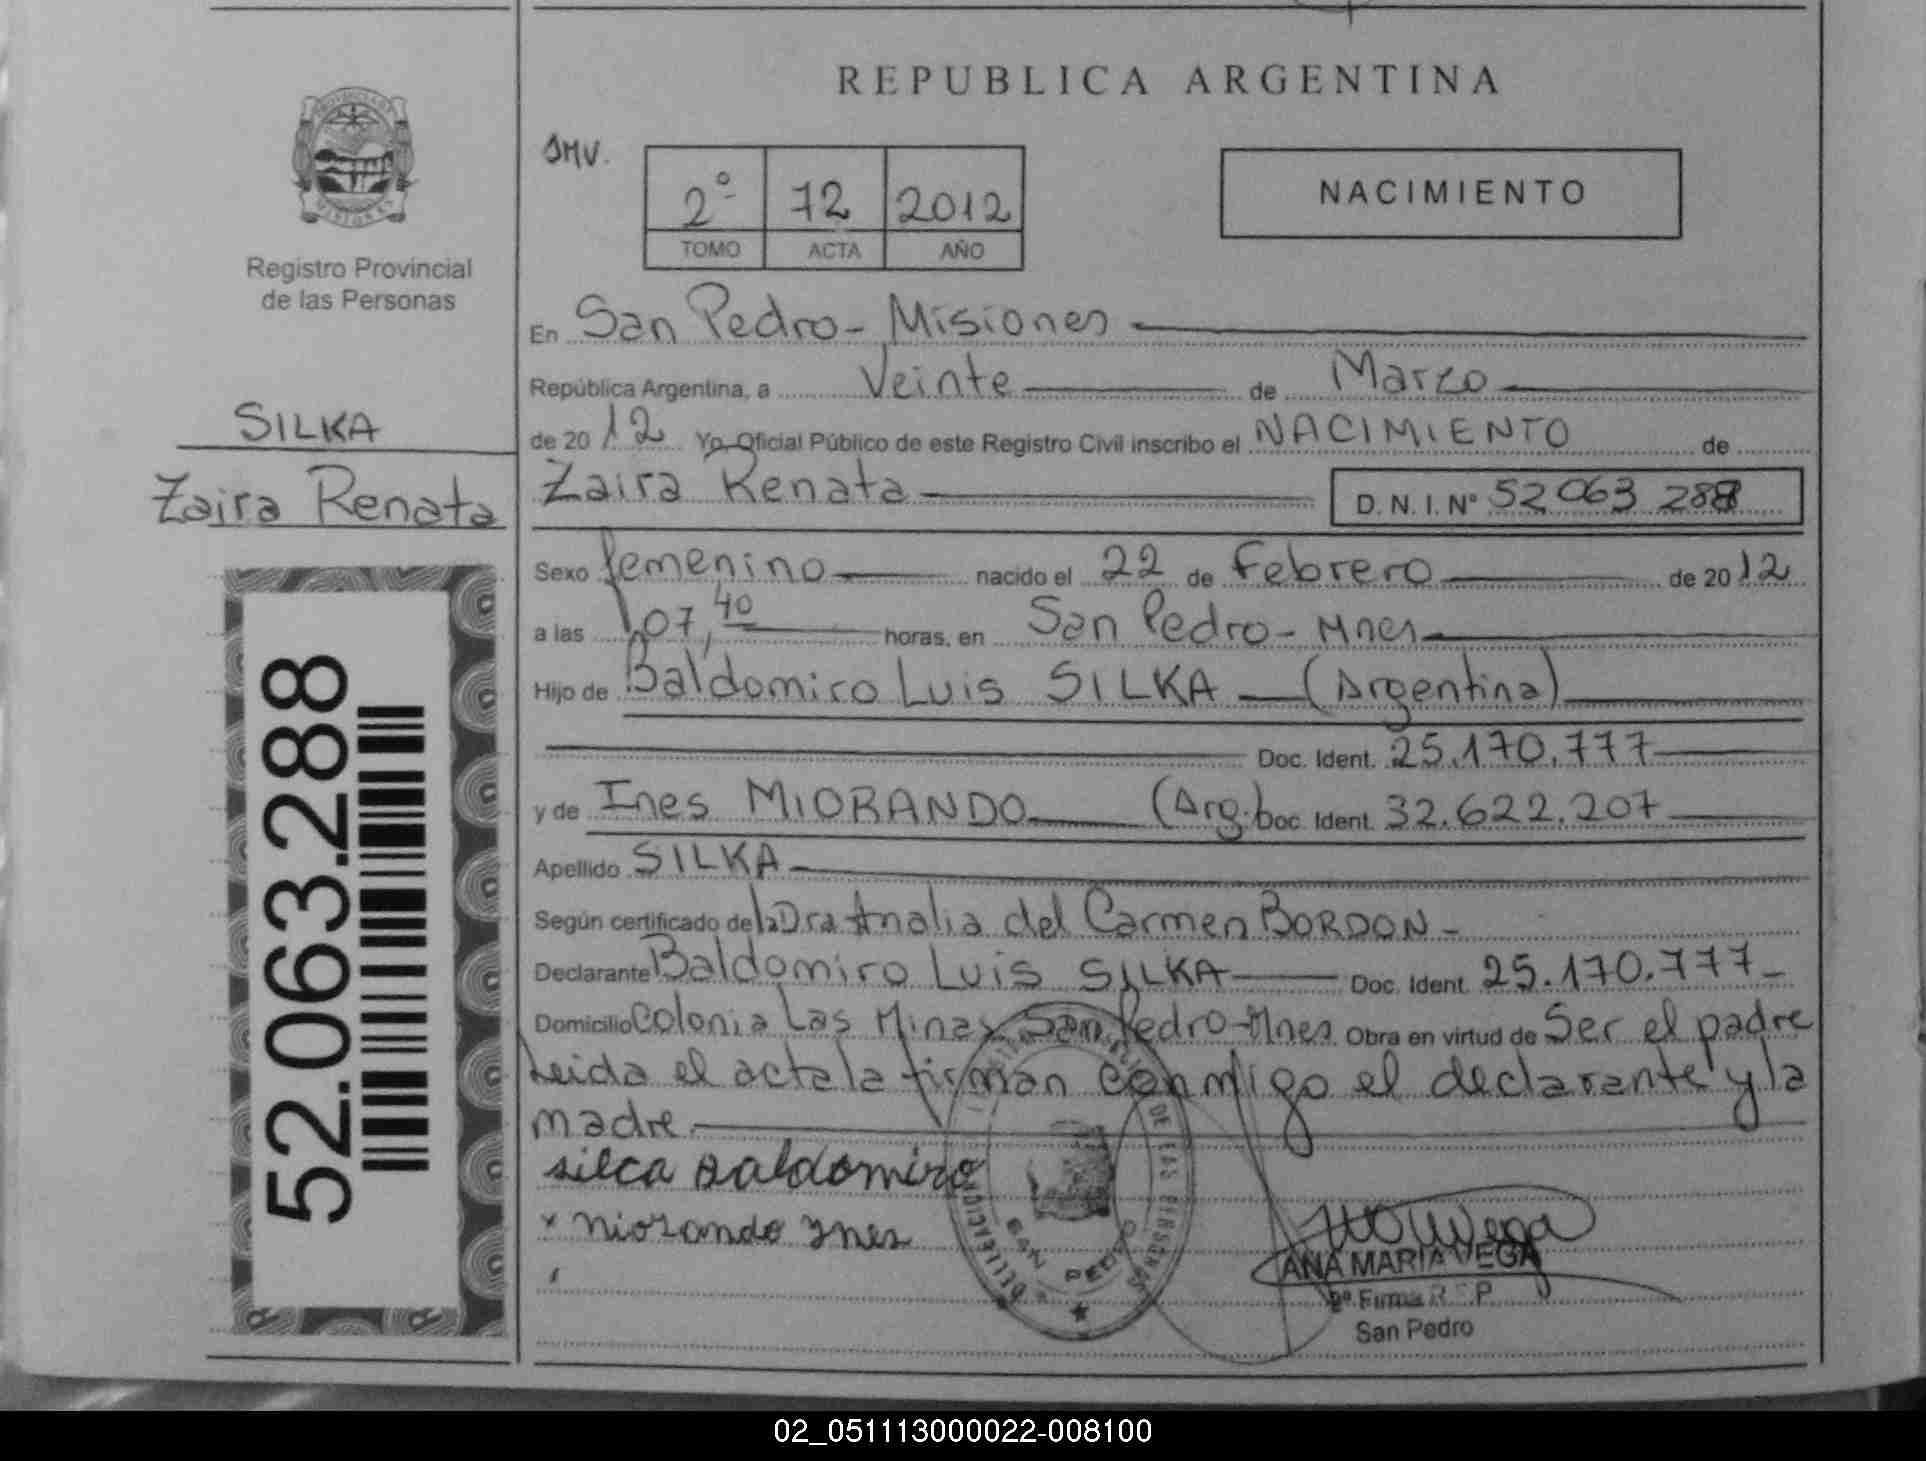 REPUBLICA ARGENTINA
PROVINCIA DE
MISIONES
Registro Provincial
de las Personas
SMV.
2º 72 2012
TOMO ACTA AÑO
NACIMIENTO
SILKA
Zaira Renata
52.063.288
En San Pedro - Misiones
República Argentina, a Veinte de Marzo
de 20 12 Yo Oficial Público de este Registro Civil inscribo el NACIMIENTO de
Zaira Renata D. N. I. Nº 52 063 288
Sexo femenino nacido el 22 de Febrero de 20 12
a las 07,40 horas, en San Pedro - Mnes
Hijo de Baldomiro Luis SILKA (Argentina)
Doc. Ident. 25.170.777
y de Ines MIORANDO (Arg.) Doc. Ident. 32.622.207
Apellido SILKA
Según certificado de la Dra Analia del Carmen BORDON -
Declarante Baldomiro Luis SILKA Doc. Ident. 25.170.777-
Domicilio Colonia Las Minas San Pedro - Mnes Obra en virtud de Ser el padre
Leida el acta la firman conmigo el declarante y la
madre.
silca Baldomiro
x Miorando Ynes
DELEGACION
DE LAS PERSONAS
SAN PEDRO
ANA MARIA VEGA
2º Firma R P
San Pedro
02_051113000022-008100